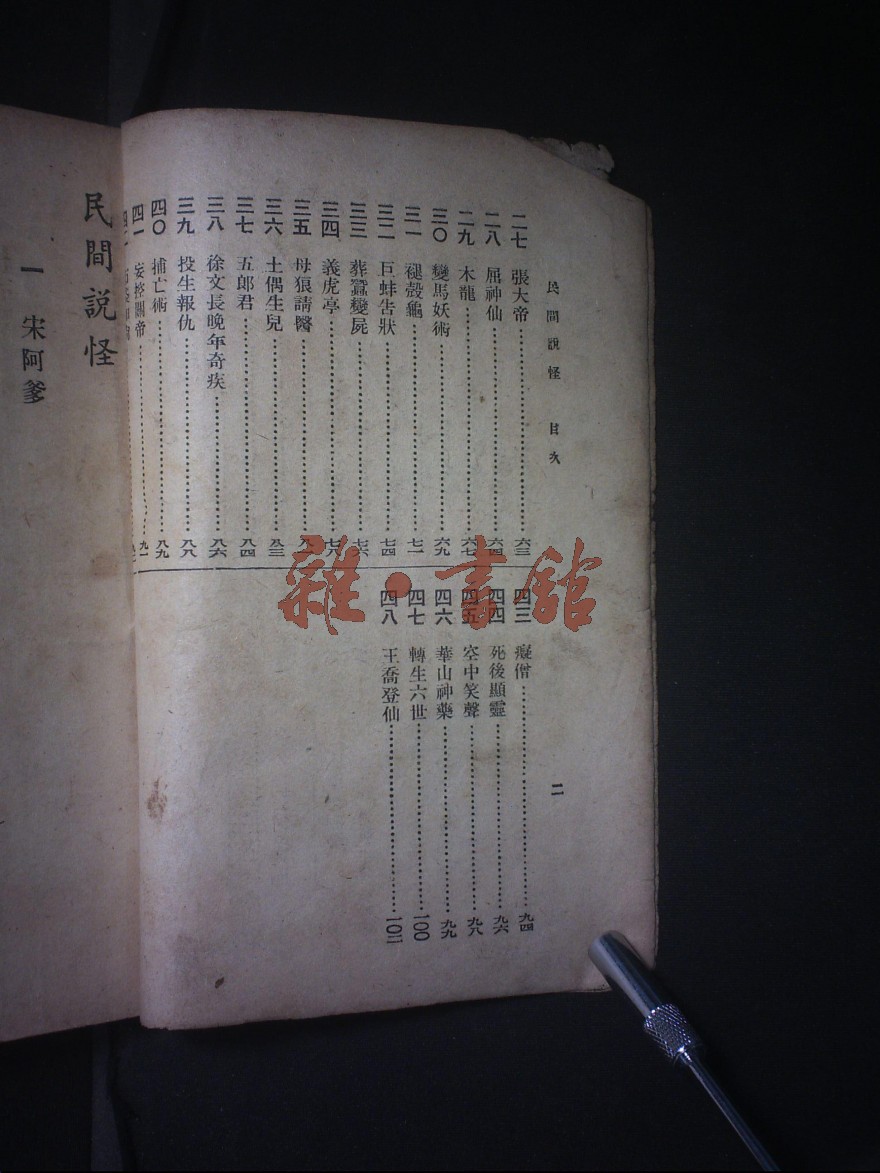 民間說怪 目次
二
二七 張大帝 六三
二八 屈神仙 六四
二九 木龍 六七
三〇 變馬妖術 六九
三一 褪殼龜 七一
三二 巨蚌告狀 七四
三三 葬蠶變屍 七六
三四 義虎亭 七八
三五 母狼請醫
三六 土偶生兒 八三
三七 五郎君 八四
三八 徐文長晚年奇疾 八六
三九 投生報仇 八八
四〇 捕亡術 八九
四一 妄控關帝 九一
四二
四三 癡僧 九四
四四 死後顯靈 九六
四五 空中笑聲 九八
四六 華山神藥 九九
四七 轉生六世 一〇〇
四八 王喬登仙 一〇二
民間說怪
一 宋阿爹
雜·書館